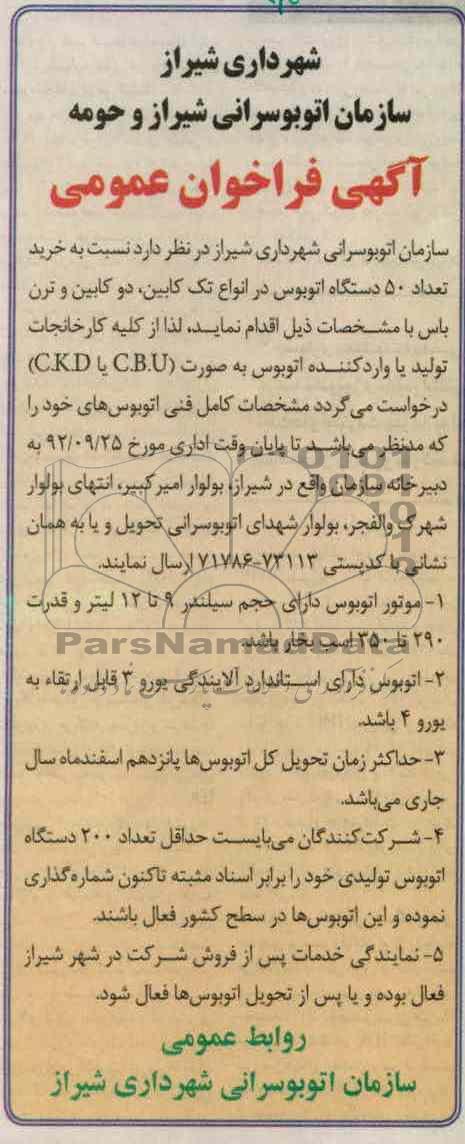 شهرداری شیراز
سازمان اتوبوسرانی شیراز و حومه
آگهی فراخوان عمومی
سازمان اتوبوسرانی شهرداری شیراز در نظر دارد نسبت به خرید
تعداد ۵۰ دستگاه اتوبوس در انواع تک کابین، دو کابین و ترن
باس با مشخصات ذیل اقدام نماید، لذا از کلیه کارخانجات
تولید یا واردکننده اتوبوس به صورت (C.B.U یا C.K.D)
درخواست می‌گردد مشخصات کامل فنی اتوبوس‌های خود را
که مدنظر می‌باشد تا پایان وقت اداری مورخ ۹۲/۰۹/۲۵ به
دبیرخانه سازمان واقع در شیراز، بولوار امیرکبیر، انتهای بولوار
شهرک والفجر، بولوار شهدای اتوبوسرانی تحویل و یا به همان
نشانی با کدپستی ۷۳۱۱۳-۷۱۷۸۶ ارسال نمایند.
۱- موتور اتوبوس دارای حجم سیلندر ۹ تا ۱۲ لیتر و قدرت
۲۹۰ تا ۳۵۰ اسب بخار باشد.
ParsNamadData
۲- اتوبوس دارای استاندارد آلایندگی یورو ۳ قابل ارتقاء به
یورو ۴ باشد.
۳- حداکثر زمان تحویل کل اتوبوس‌ها پانزدهم اسفندماه سال
جاری می‌باشد.
۴- شرکت‌کنندگان می‌بایست حداقل تعداد ۲۰۰ دستگاه
اتوبوس تولیدی خود را برابر اسناد مثبته تاکنون شماره‌گذاری
نموده و این اتوبوس‌ها در سطح کشور فعال باشند.
۵- نمایندگی خدمات پس از فروش شرکت در شهر شیراز
فعال بوده و یا پس از تحویل اتوبوس‌ها فعال شود.
روابط عمومی
سازمان اتوبوسرانی شهرداری شیراز